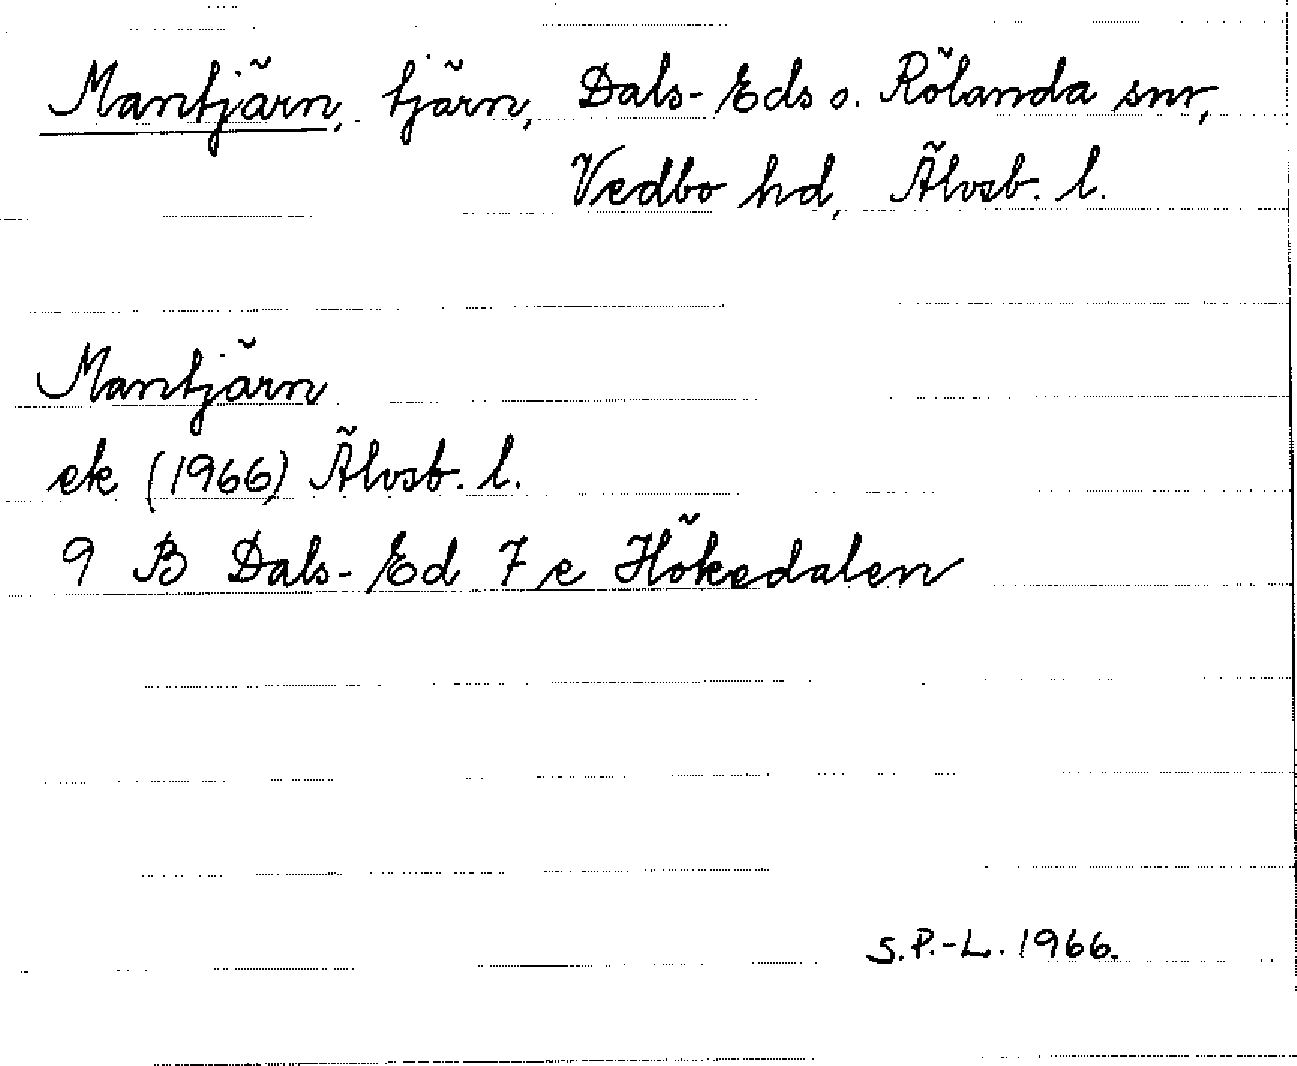 Mantjärn, tjärn, Dals-Eds o. Rölanda snr,
Vedbo hd, Älvsb. l.
Mantjärn
ek (1966) Älvsb. l.
9 B Dals-Ed 7 e Hökedalen
S.P.-L. 1966.